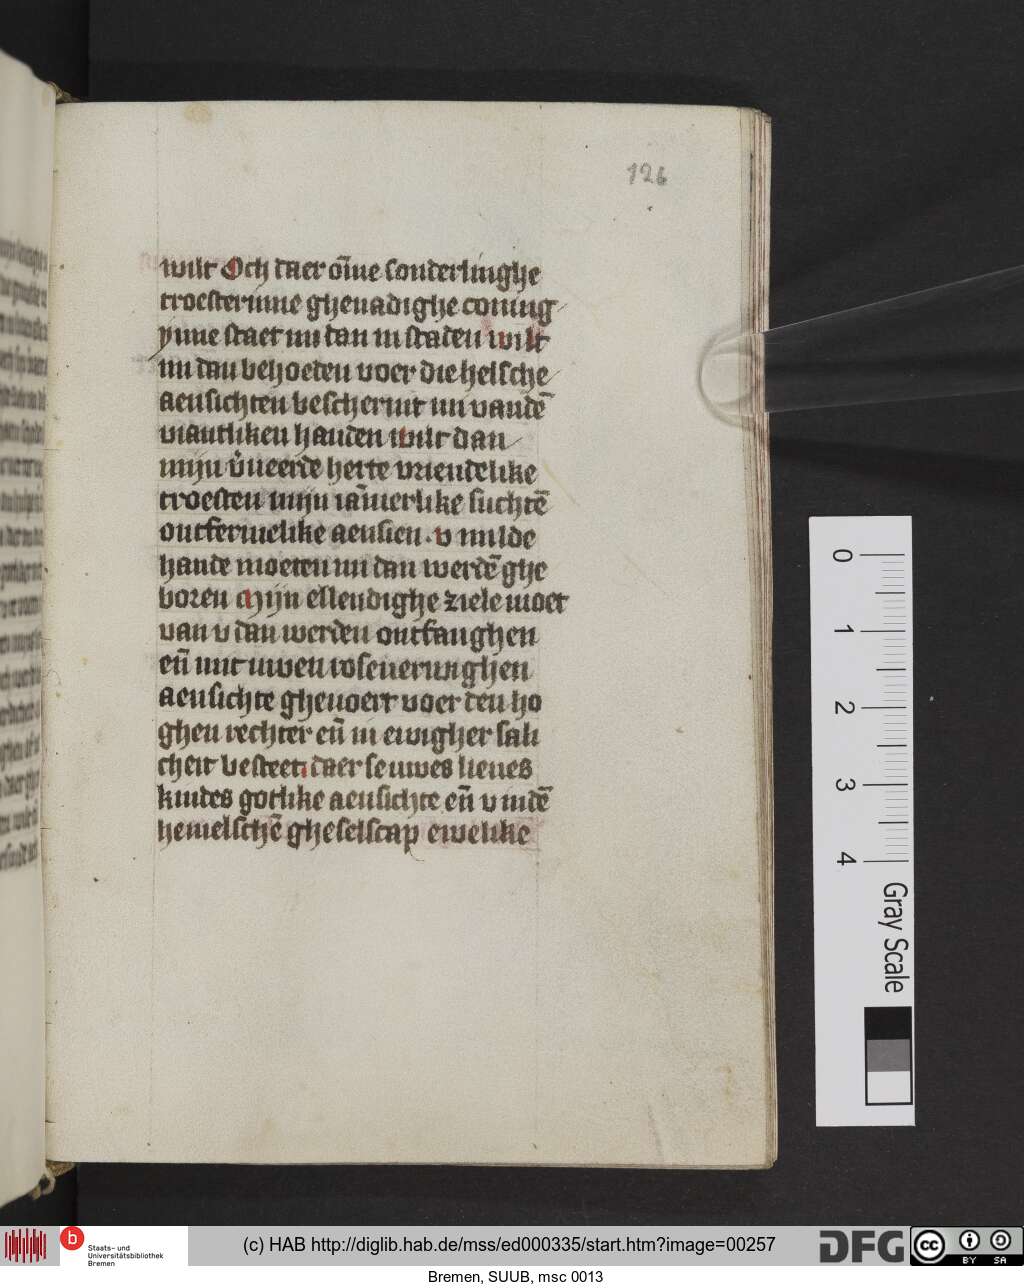 126
wilt Och daer om̄e sonderlinghe
troesterinne ghenadighe coning
ynne staet mi dan in staden wilt
mi dan behoeden voer die helsche
aensichten beschermt mi vandē
viantliken handen wilt dan
mijn v̄neerde herte vriendelike
troesten mijn iām̄erlike suchtē
ontfermelike aensien. v milde
hande moeten mi dan werdē ghe
boren Mijn ellendighe ziele moet
van v dan werden ontfanghen
en̄ mit uwen roseuerwighen
aensichte gheuoert voer den ho
ghen rechter en̄ in ewigher sali
cheit besteet daer se uwes lieues
kindes gotlike aensichte en̄ v mdē
hemelschē gheselscap ewelike
0
1
2
3
4
Gray Scale
b
Staats- und
Universitätsbibliothek
Bremen
(c) HAB http://diglib.hab.de/mss/ed000335/start.htm?image=00257
DFG
cc
BY SA
Bremen, SUUB, msc 0013